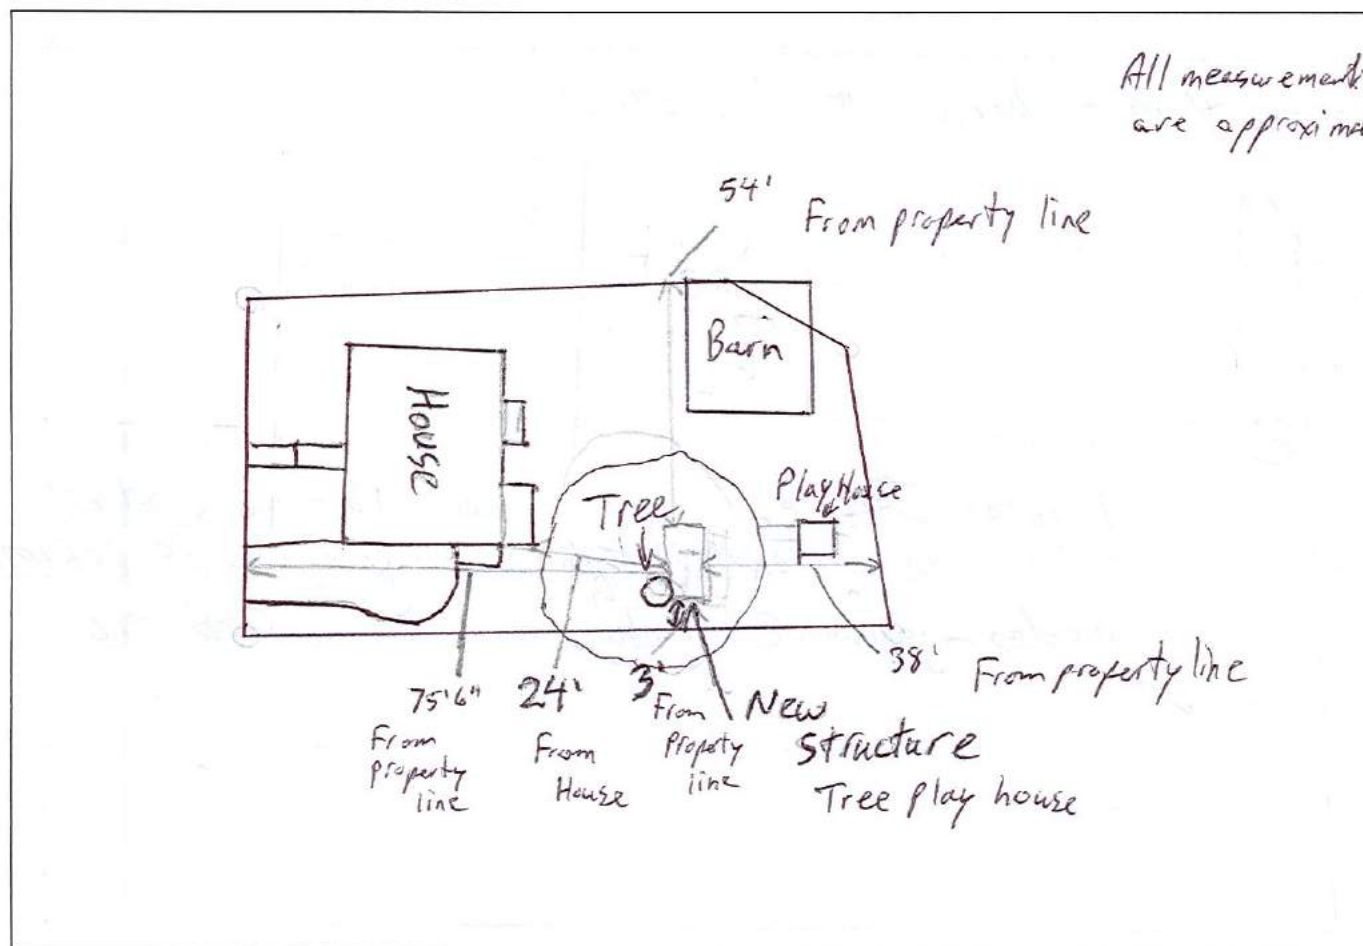 All measurement
are approxima
54'
From property line
Barn
House
Play House
Tree
38'
From property line
75'6"
From
property
line
24'
From
House
3'
From
property
line
New
structure
Tree play house